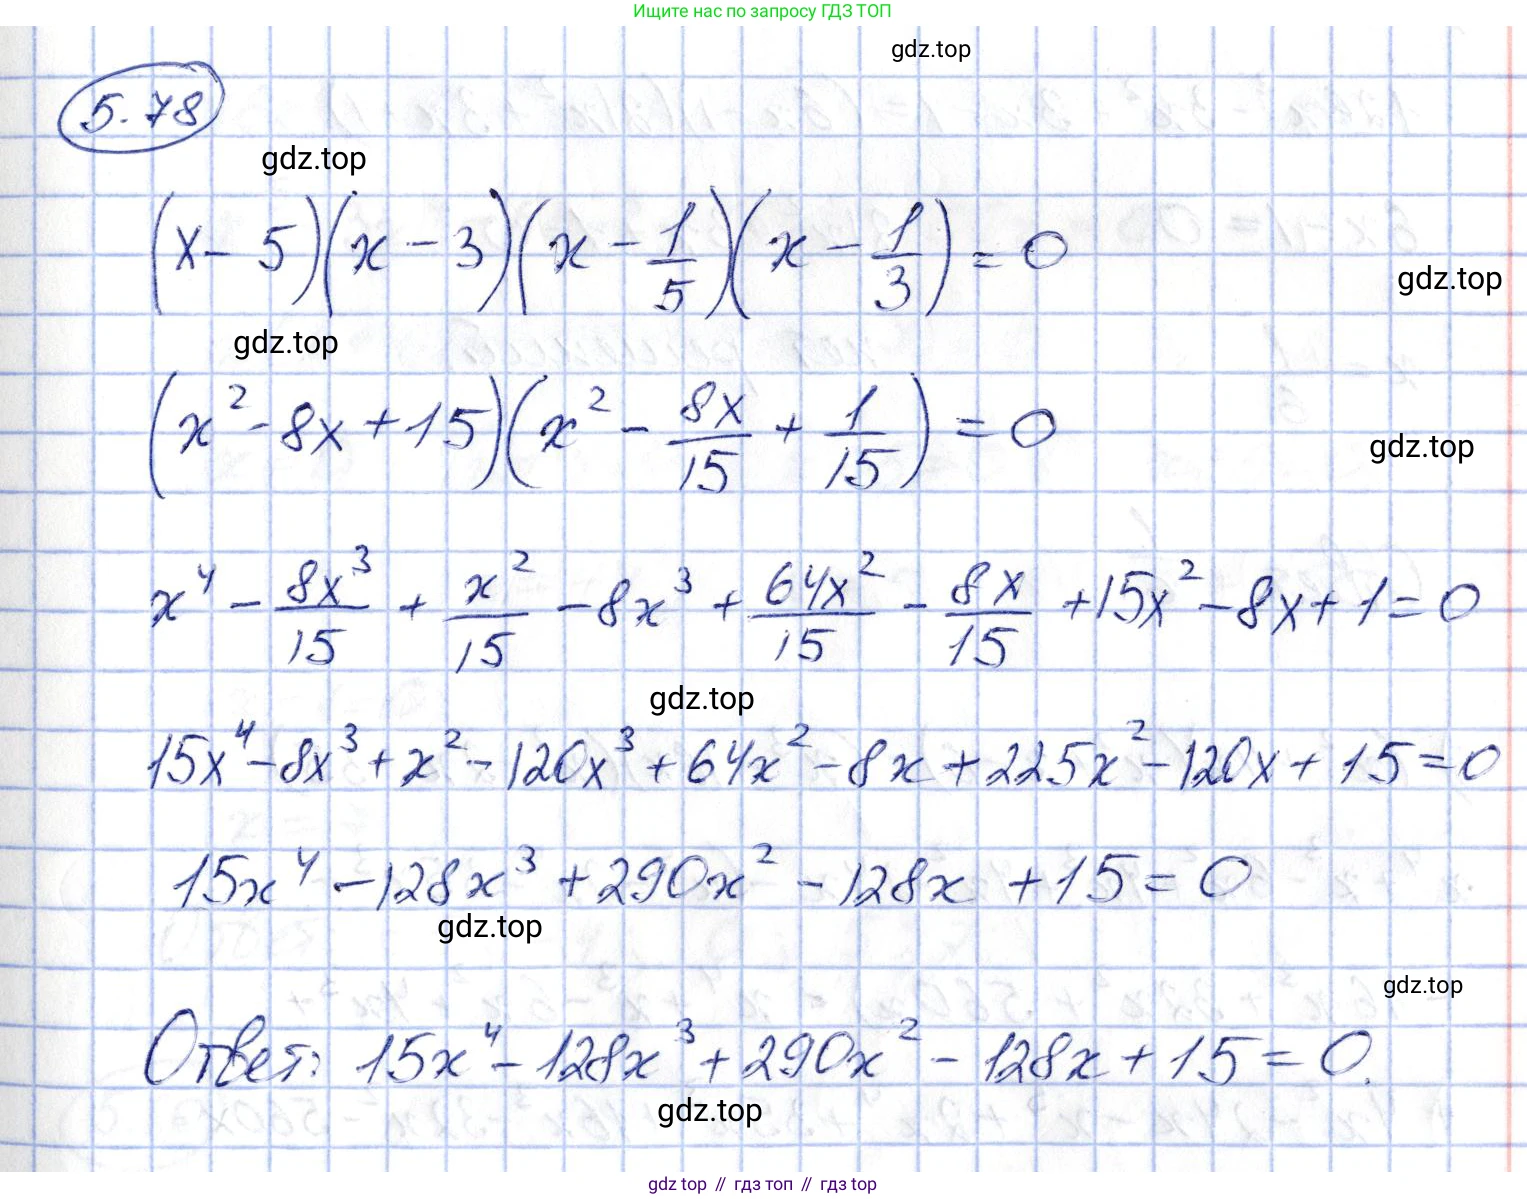 Ищите нас по запросу ГДЗ ТОП
gdz.top
5.78
gdz.top
(x - 5)(x - 3)(x - 1/5)(x - 1/3) = 0
gdz.top
gdz.top
(x² - 8x + 15)(x² - 8x/15 + 1/15) = 0
gdz.top
x⁴ - 8x³/15 + x²/15 - 8x³ + 64x²/15 - 8x/15 + 15x² - 8x + 1 = 0
gdz.top
15x⁴ - 8x³ + x² - 120x³ + 64x² - 8x + 225x² - 120x + 15 = 0
15x⁴ - 128x³ + 290x² - 128x + 15 = 0
gdz.top
gdz.top
Ответ: 15x⁴ - 128x³ + 290x² - 128x + 15 = 0.
gdz.top
gdz top // гдз топ // гдз top